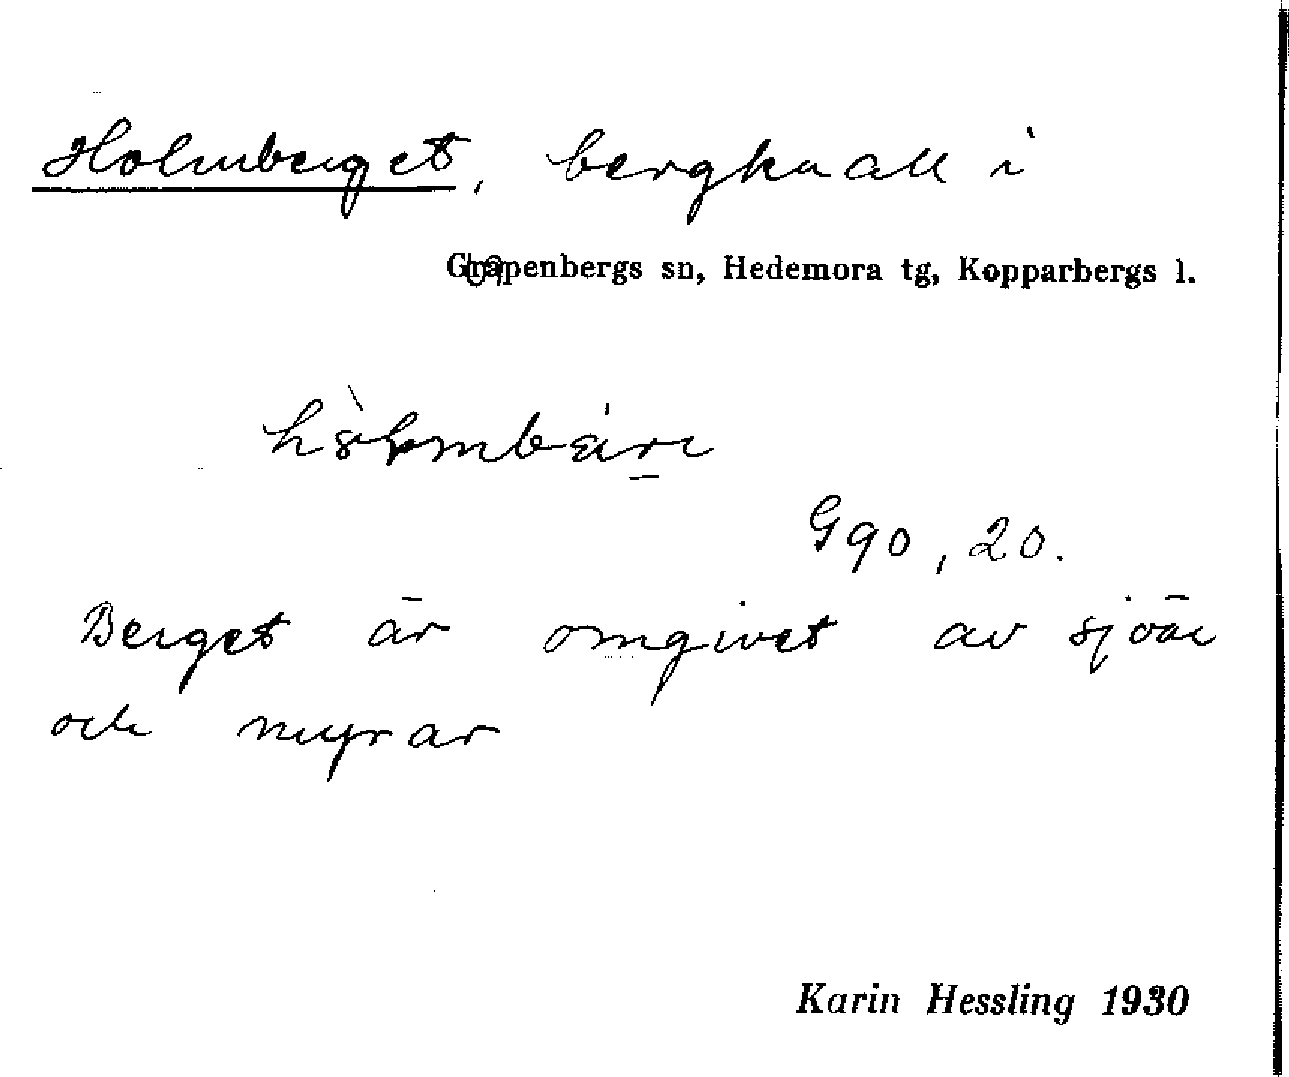 Holmberget, bergknall i
Grapenbergs sn, Hedemora tg, Kopparbergs l.
G90, 20.
Berget är omgivet av sjöar
och myrar
Karin Hessling 1930